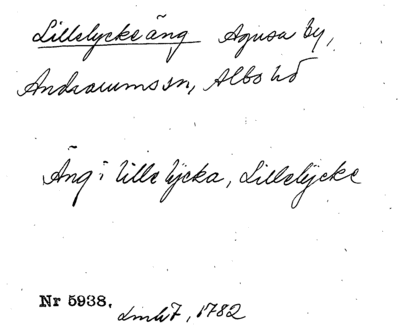 Lillelyckeäng Agusa by,
Andrarums sn, Albo hd
Äng i Lille lycka, Lillelycke
Nr 5938.
LmhT, 1782